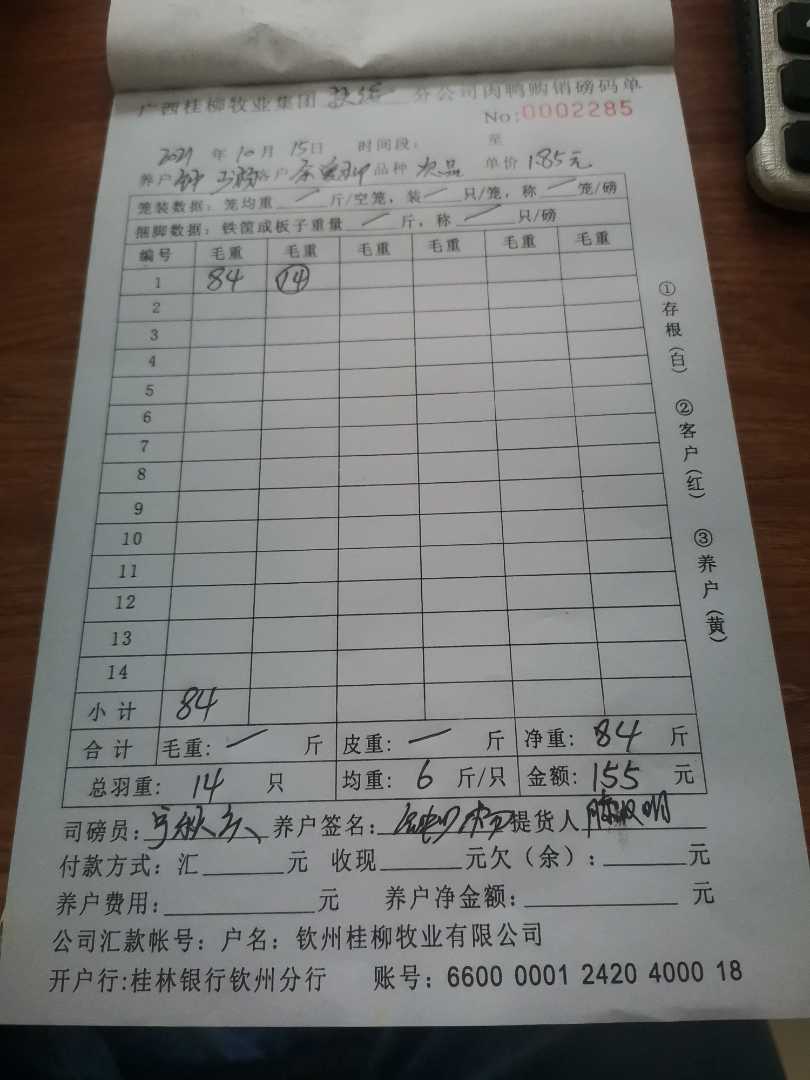 广西桂柳牧业集团 分公司肉鸭购销磅码单
No:0002285
2021 年 10 月 15 日 时间段： 至
养户 客户 品种 次品 单价 1.85元
笼装数据：笼均重 / 斤/空笼，装 / 只/笼，称 / 笼/磅
捆脚数据：铁筐或板子重量 / 斤，称 / 只/磅
编号 毛重 毛重 毛重 毛重 毛重 毛重
1 84 14
2
3
4
5
6
7
8
9
10
11
12
13
14
小计 84
合计 毛重：/ 斤 皮重：/ 斤 净重：84 斤
总羽重：14 只 均重：6 斤/只 金额：155 元
司磅员： 养户签名： 提货人
付款方式：汇 元 收现 元欠（余）： 元
养户费用： 元 养户净金额： 元
公司汇款帐号：户名：钦州桂柳牧业有限公司
开户行:桂林银行钦州分行 账号：6600 0001 2420 4000 18
①存根（白） ②客户（红） ③养户（黄）